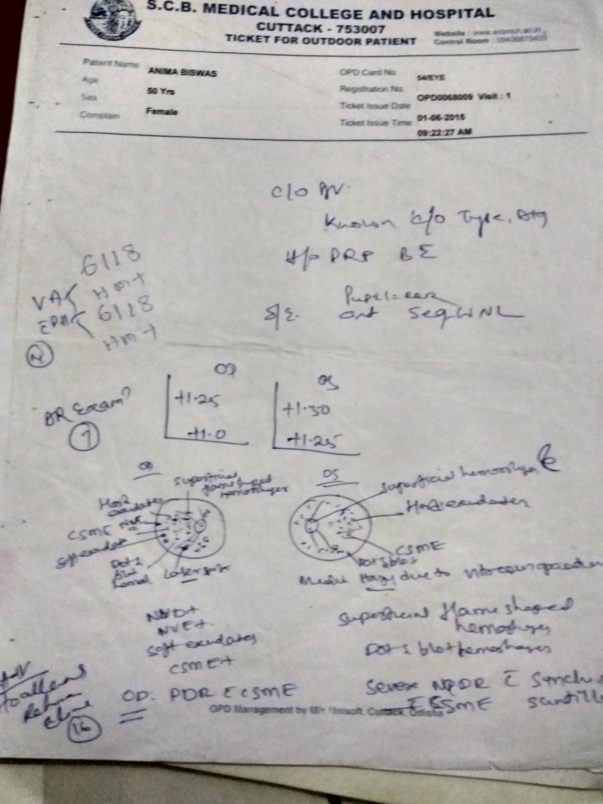 S.C.B. MEDICAL COLLEGE AND HOSPITAL
CUTTACK - 753007
TICKET FOR OUTDOOR PATIENT
Website :
Control Room :
Patient Name ANIMA BISWAS
Age 50 Yrs
Sex Female
Complain
OPD Card No 54/EYE
Registration No. OPD0068009 Visit : 1
Ticket Issue Date 01-06-2015
Ticket Issue Time 09:22:27 AM
C/O DV.
Known c/o Type
H/o PRP BE
VA 6/18
HM+
6/18
HM+
S/E. Pupil
ant seg WNL
OD OS
+1.25 +1.50
+1.0 +1.25
OD
Superficial flame shaped hemorrhages
Hard exudates
NVE
CSME
Soft exudates
Dot & blot
Laser
OS
Superficial hemorrhages
Hard exudates
CSME
Dot & blot
Media Hazy due to vitreous
NVD+
NVE+
Soft exudates
CSME+
Superficial flame shaped
hemorrhages
Dot & blot hemorrhages
OD: PDR C CSME
Severe NPDR C
C CSME
Adv
to attend
Retina
clinic
16
OPD Management by Cuttack, Odisha